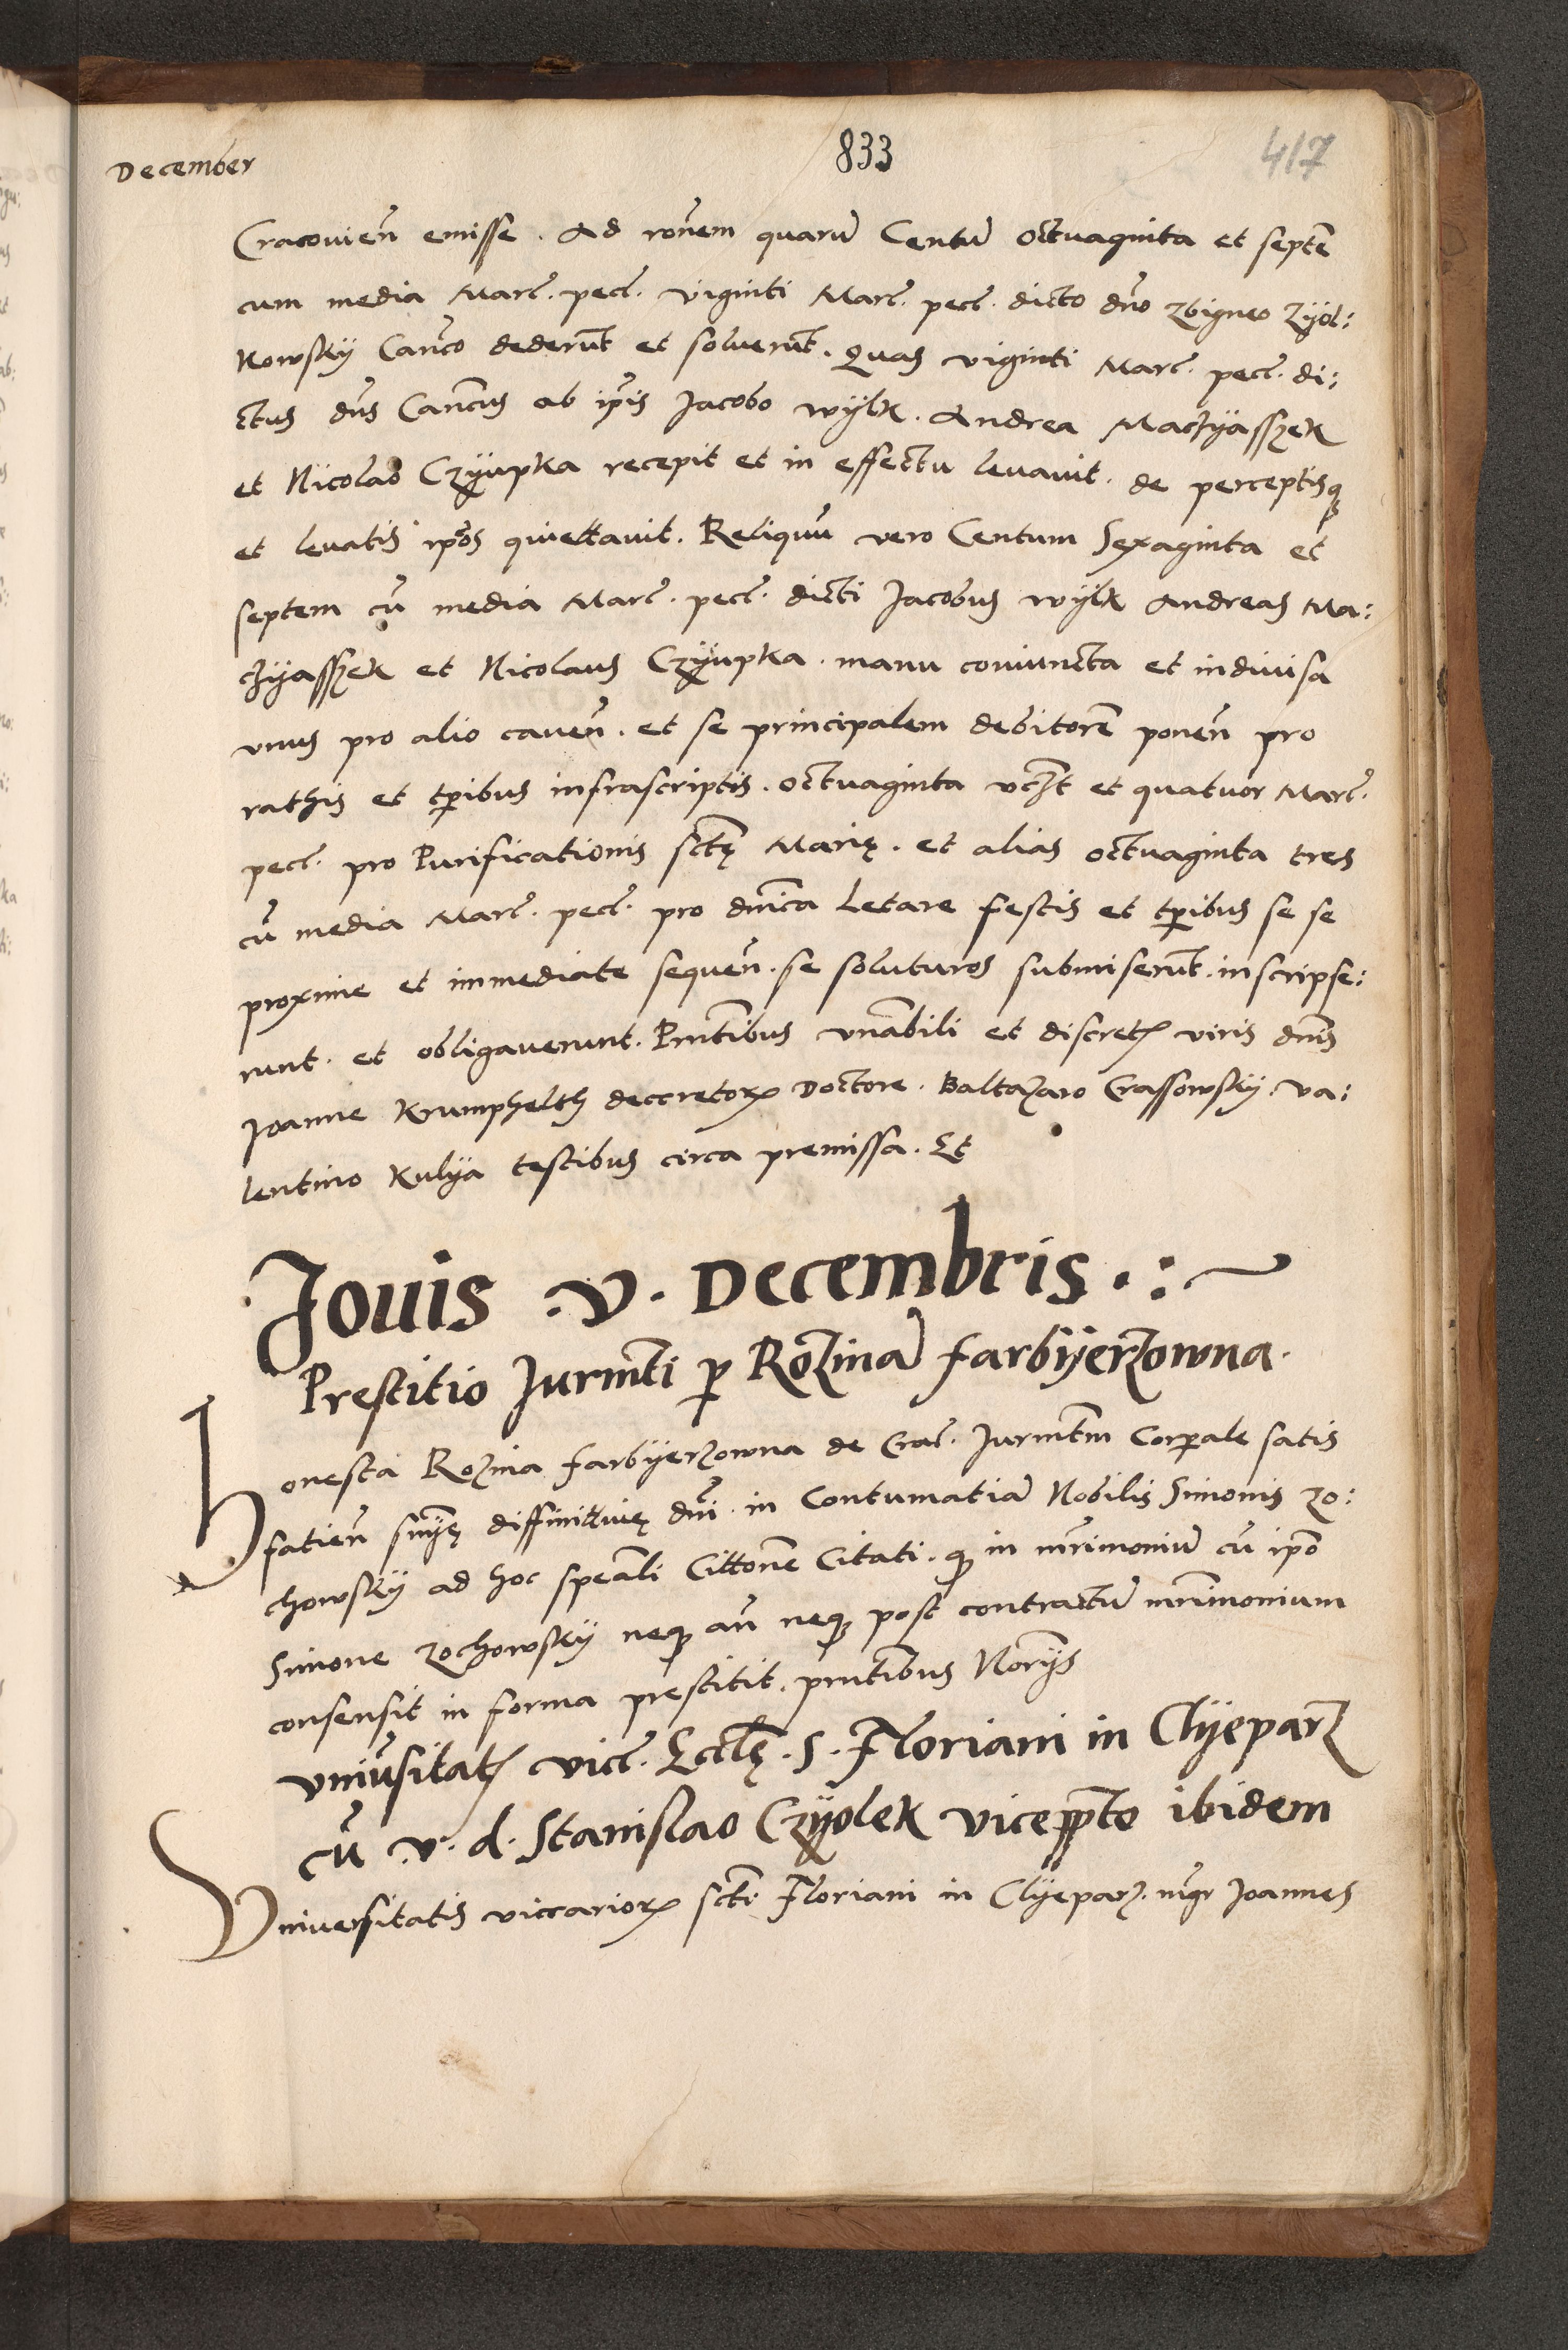 December
833
417
Cracovien̄ emisse. Ad ron̄em quarū Centū octuaginta et septē
cum media Marc. pecc. viginti Marc. pecc. dicto dn̄o Zbigneo Zyol:
kowsky Can̄co dederūt et soluerūt. Quas viginti Marc. pecc. di:
ctus dn̄s Can̄cus ab ip̄is Jacobo wylk. Andrea Maczyasszek
et Nicolao Czyupka recepit et in effectu leuauit. de perceptisq
et leuatis ip̄os quiettauit. Reliquū vero Centum Sexaginta et
septem cū media Marc. pecc. dicti Jacobus wylk Andreas Ma:
czyasszek et Nicolaus Czyupka. manu coniuncta et indiuisa
vnus pro alio cauen̄. et se principalem debitorē ponen̄ pro
rathis et tp̄ribus infrascriptis. octuaginta vcz̄t et quatuor Marc.
pecc. pro Purificationis sctę̄ Marię. et alias octuaginta tres
cū media Marc. pecc. pro dn̄ica Letare festis et tp̄ribus se se
proxime et immediate sequen̄. se soluturos submiserūt. inscripse:
runt. et obligauerunt. Pn̄tibus vn̄abili et discret̄ viris dn̄is
Joanne Krumphelth decretor̄ Doctore. Baltazaro Crassowsky. va:
lentino Kulya testibus circa premissa. Et
Jouis .v. Decembris.:~
Prestitio Jurmn̄ti p Rozinā farbyerzowna.
Honesta Rozina farbyerzowna de Crac. Jurmn̄tm Corp̄ale satis
fatien̄ sn̄ię diffinittiuę dn̄i. in Contumatiā Nobilis Simonis Zo:
chowsky ad hoc speāli Cittōne Citati. q̄ in mr̄imoniū cū ip̄o
Simone Zochowsky neq̄ an̄ neq̄ post contractū mr̄imonium
consensit in forma prestitit. pn̄tibus Nor̄ys
vniūsitat̄ vicc. Eccl̄ę. S. Floriani in Clyeparz
cū v. d. Stanislao Czyolek vicepp̄to ibidem
Vniuersitatis viccarior̄ sctī Floriani in Clyeparz. mḡr Joannes